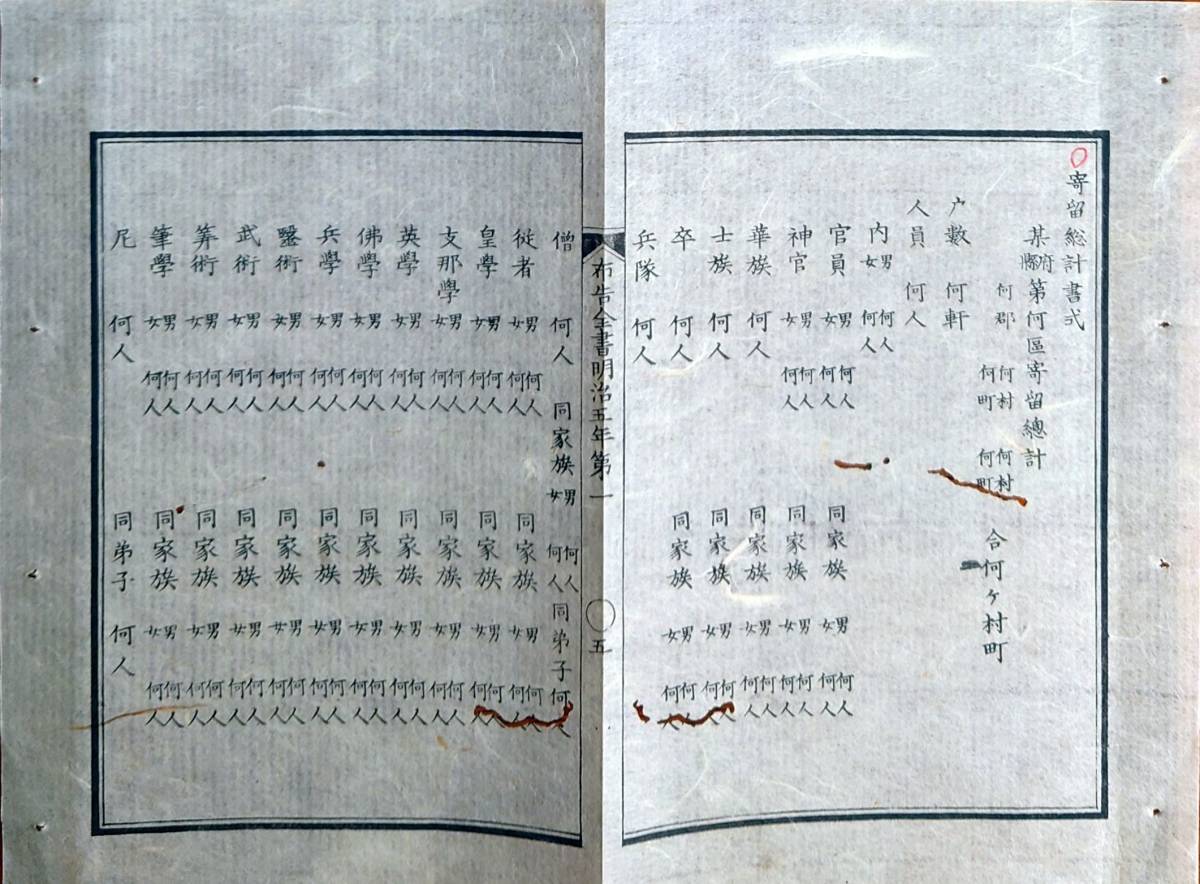 ○寄留総計書式
某府縣第何區寄留總計
何郡 何村何町 何村何町 合何ヶ村町
戸數 何軒
人員 何人
内男女 何人何人
官員 男女 何人何人 同家族 男女 何人何人
神官 男女 何人何人 同家族 男女 何人何人
華族 何人 同家族 男女 何人何人
士族 何人 同家族 男女 何人何人
卒 何人 同家族 男女 何人何人
兵隊 何人
布告全書明治五年第一 ○五
僧 何人 同家族 男女 何人何人 同弟子何人
従者 男女 何人何人 同家族 男女 何人何人
皇學 男女 何人何人 同家族 男女 何人何人
支那學 男女 何人何人 同家族 男女 何人何人
英學 男女 何人何人 同家族 男女 何人何人
佛學 男女 何人何人 同家族 男女 何人何人
兵學 男女 何人何人 同家族 男女 何人何人
醫術 男女 何人何人 同家族 男女 何人何人
武術 男女 何人何人 同家族 男女 何人何人
筭術 男女 何人何人 同家族 男女 何人何人
筆學 男女 何人何人 同家族 男女 何人何人
尼 何人 同弟子 何人